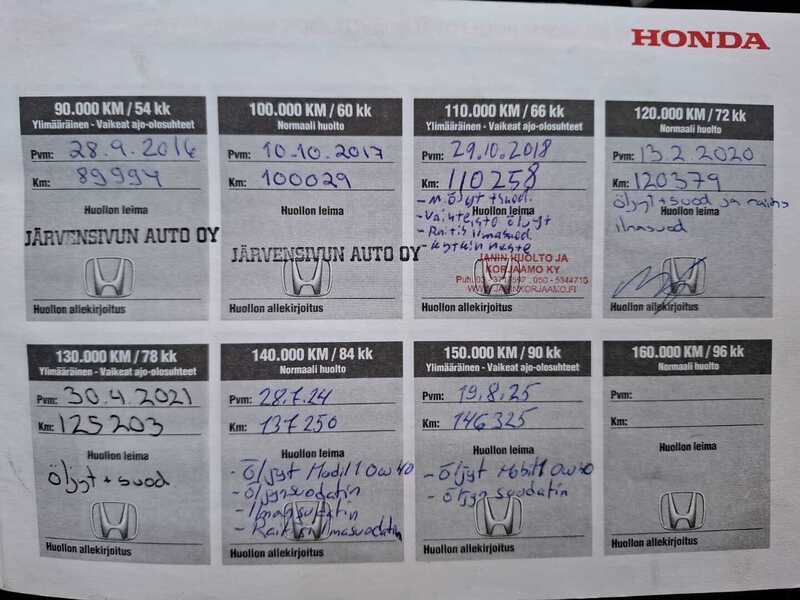 HONDA
90.000 KM / 54 kk
Ylimääräinen - Vaikeat ajo-olosuhteet
Pvm: 28.9.2016
Km: 89994
Huollon leima
JÄRVENSIVUN AUTO OY
Huollon allekirjoitus
100.000 KM / 60 kk
Normaali huolto
Pvm: 10.10.2017
Km: 100029
Huollon leima
JÄRVENSIVUN AUTO OY
Huollon allekirjoitus
110.000 KM / 66 kk
Ylimääräinen - Vaikeat ajo-olosuhteet
Pvm: 29.10.2018
Km: 110258
- M. Öljyt + suod.
Huollon leima
- Vaihteisto öljyt
- Raitis ilmasuod.
- Kytkin neste
JANIN HUOLTO JA
KORJAAMO KY
WWW.JANINKORJAAMO.FI
Huollon allekirjoitus
120.000 KM / 72 kk
Normaali huolto
Pvm: 13.2.2020
Km: 120379
öljyt + suod ja raitis
Huollon leima
ilmasuod
Huollon allekirjoitus
130.000 KM / 78 kk
Ylimääräinen - Vaikeat ajo-olosuhteet
Pvm: 30.4.2021
Km: 125203
Huollon leima
öljyt + suod
Huollon allekirjoitus
140.000 KM / 84 kk
Normaali huolto
Pvm: 28.7.24
Km: 137250
Huollon leima
- Öljyt Mobil 1 0w40
- Öljynsuodatin
- Ilmansuodatin
- Raitisilmasuodatin
Huollon allekirjoitus
150.000 KM / 90 kk
Ylimääräinen - Vaikeat ajo-olosuhteet
Pvm: 19.8.25
Km: 146325
Huollon leima
- Öljyt Mobil1 0w40
- Öljyn suodatin
Huollon allekirjoitus
160.000 KM / 96 kk
Normaali huolto
Pvm:
Km:
Huollon leima
Huollon allekirjoitus